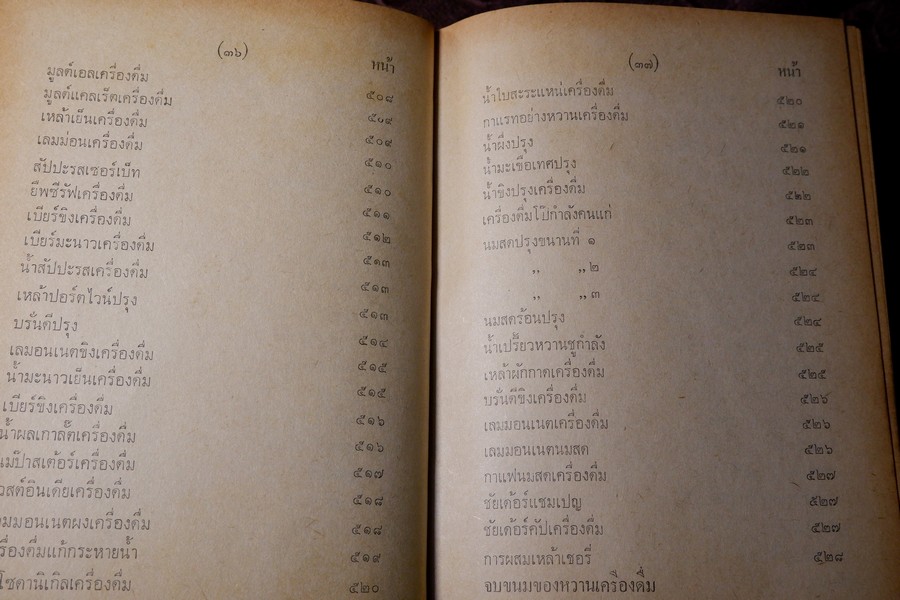 (๓๖)
หน้า
มูลต์เอลเครื่องดื่ม ๕๐๘
มูลต์แคลเร็ตเครื่องดื่ม ๕๐๙
เหล้าเย็นเครื่องดื่ม ๕๐๙
เลมม่อนเครื่องดื่ม ๕๑๐
สัปปะรสเชอร์เบ็ท ๕๑๐
ยีพซีรัฟเครื่องดื่ม ๕๑๑
เบียร์ขิงเครื่องดื่ม ๕๑๒
เบียร์มะนาวเครื่องดื่ม ๕๑๓
น้ำสัปปะรสเครื่องดื่ม ๕๑๓
เหล้าปอร์ตไวน์ปรุง ๕๑๓
บรั่นดีปรุง ๕๑๔
เลมอนเนตขิงเครื่องดื่ม ๕๑๕
น้ำมะนาวเย็นเครื่องดื่ม ๕๑๕
เบียร์ขิงเครื่องดื่ม ๕๑๖
น้ำผลเกาลัตเครื่องดื่ม ๕๑๖
นมป๊าสเต้อร์เครื่องดื่ม ๕๑๗
วสต์อินเดียเครื่องดื่ม ๕๑๘
ลมมอนเนตผงเครื่องดื่ม ๕๑๘
รื่องดื่มแก้กระหายน้ำ ๕๑๙
โซดานิเกิลเครื่องดื่ม ๕๒๐
(๓๗)
หน้า
น้ำใบสะระแหน่เครื่องดื่ม ๕๒๐
กาแรทอย่างหวานเครื่องดื่ม ๕๒๑
น้ำผึ้งปรุง ๕๒๑
น้ำมะเขือเทศปรุง ๕๒๒
น้ำขิงปรุงเครื่องดื่ม ๕๒๒
เครื่องดื่มโป๊กำลังคนแก่ ๕๒๓
นมสดปรุงขนานที่ ๑ ๕๒๓
,, ,, ๒ ๕๒๔
,, ,, ๓ ๕๒๔
นมสดร้อนปรุง ๕๒๔
น้ำเปรี้ยวหวานชูกำลัง ๕๒๕
เหล้าผักกาดเครื่องดื่ม ๕๒๕
บรั่นดีขิงเครื่องดื่ม ๕๒๖
เลมมอนเนตเครื่องดื่ม ๕๒๖
เลมมอนเนตนมสด ๕๒๖
กาแฟนมสดเครื่องดื่ม ๕๒๗
ซัยเด้อร์แชมเปญ ๕๒๗
ซัยเด้อร์คัปเครื่องดื่ม ๕๒๗
การผสมเหล้าเชอรี่ ๕๒๘
จบขนมของหวานเครื่องดื่ม